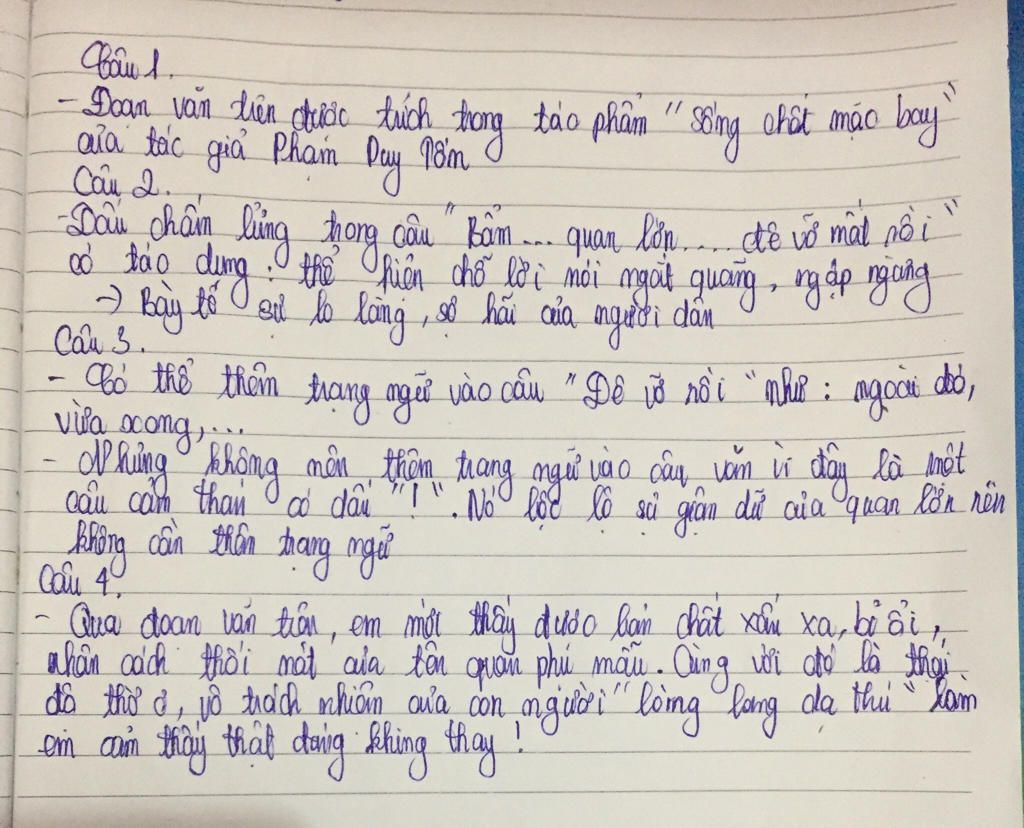 Câu 1.
- Đoạn văn trên được trích trong tác phẩm "Sống chết mặc bay"
của tác giả Phạm Duy Tốn
Câu 2.
- Dấu chấm lửng trong câu "Bẩm... quan lớn.... đê vỡ mất rồi"
có tác dụng : thể hiện chỗ lời nói ngắt quãng, ngập ngừng
-> Bày tỏ sự lo lắng, sợ hãi của người dân
Câu 3.
- Có thể thêm trạng ngữ vào câu "Đê vỡ rồi" như : ngoài đó,
vừa xong,...
- Nhưng không nên thêm trạng ngữ vào câu văn vì đây là một
câu cảm thán có dấu "!". Nó lộc lộ sự giận dữ của quan lớn nên
không cần thên trạng ngữ
Câu 4.
- Qua đoạn văn trên, em mới thấy được bản chất xấu xa, bỉ ổi,
nhân cách thối nát của tên quan phụ mẫu. Cùng với đó là thái
độ thờ ơ, vô trách nhiệm của con người "lòng lang dạ thú" làm
em cảm thấy thật đáng khing thay !